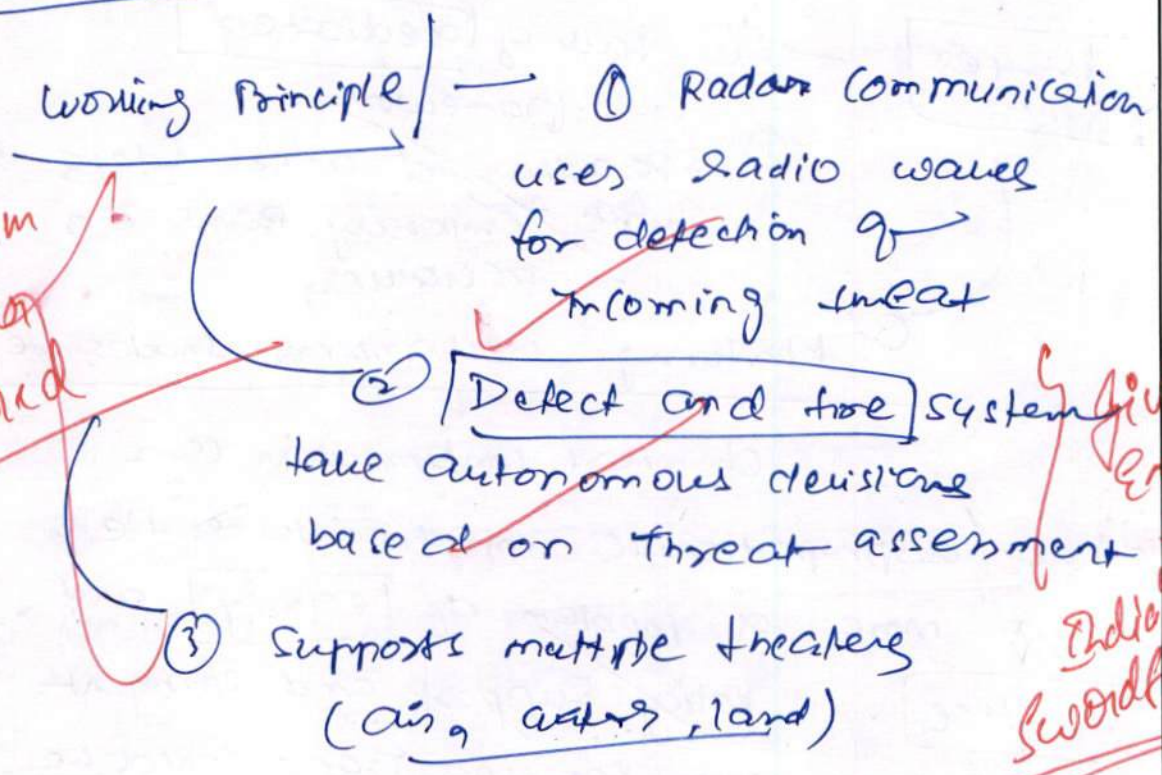 Working Principle — ① Radar Communication
uses Radio waves
for detection of
incoming threat
② Detect and fire system
take autonomous decisions
based on threat assessment
③ Supports multiple theaters
(air, water, land)